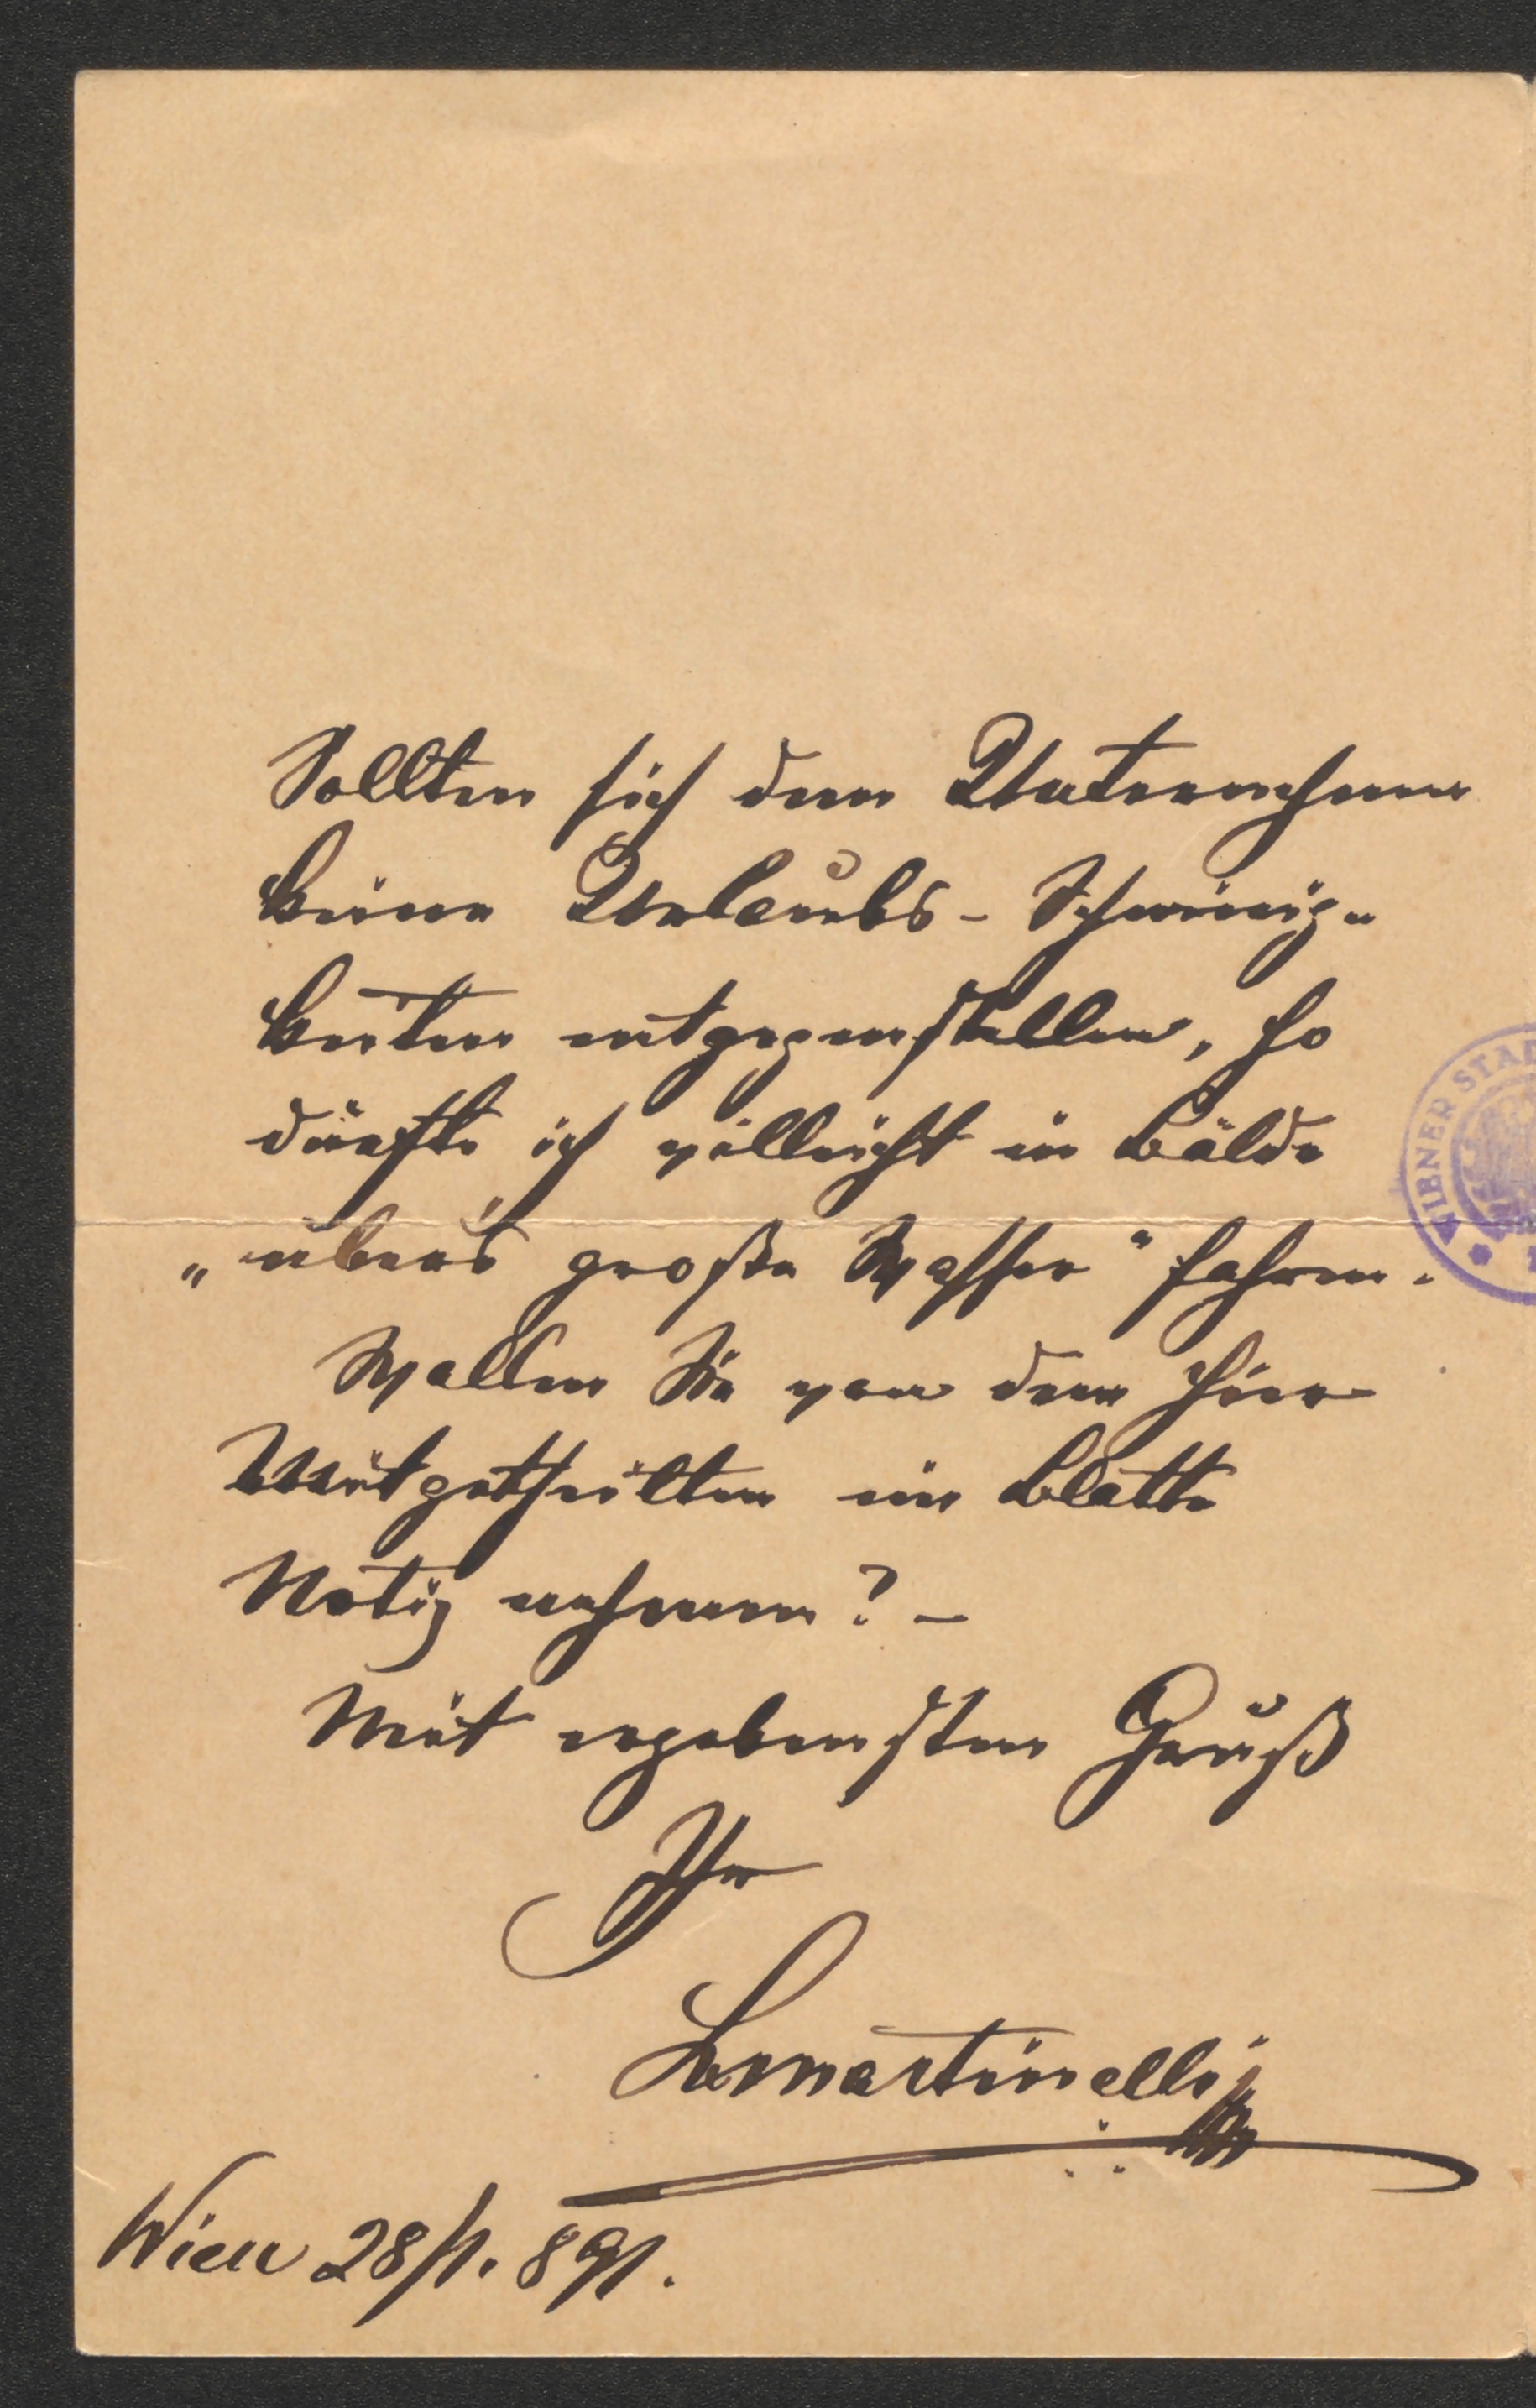 Sollten sich dem Unternehmen
keine Urlaubs-Schwierig-
keiten entgegenstellen, so
dürfte ich vielleicht in Bälde
„über's große Wasser" fahren.
Wollen Sie von dem hier
Mitgetheilten im Blatte
Notiz nehmen? –
Mit ergebenstem Gruß
Ihr
LMartinelli
Wien 28/1. 891.
WIENER STAD